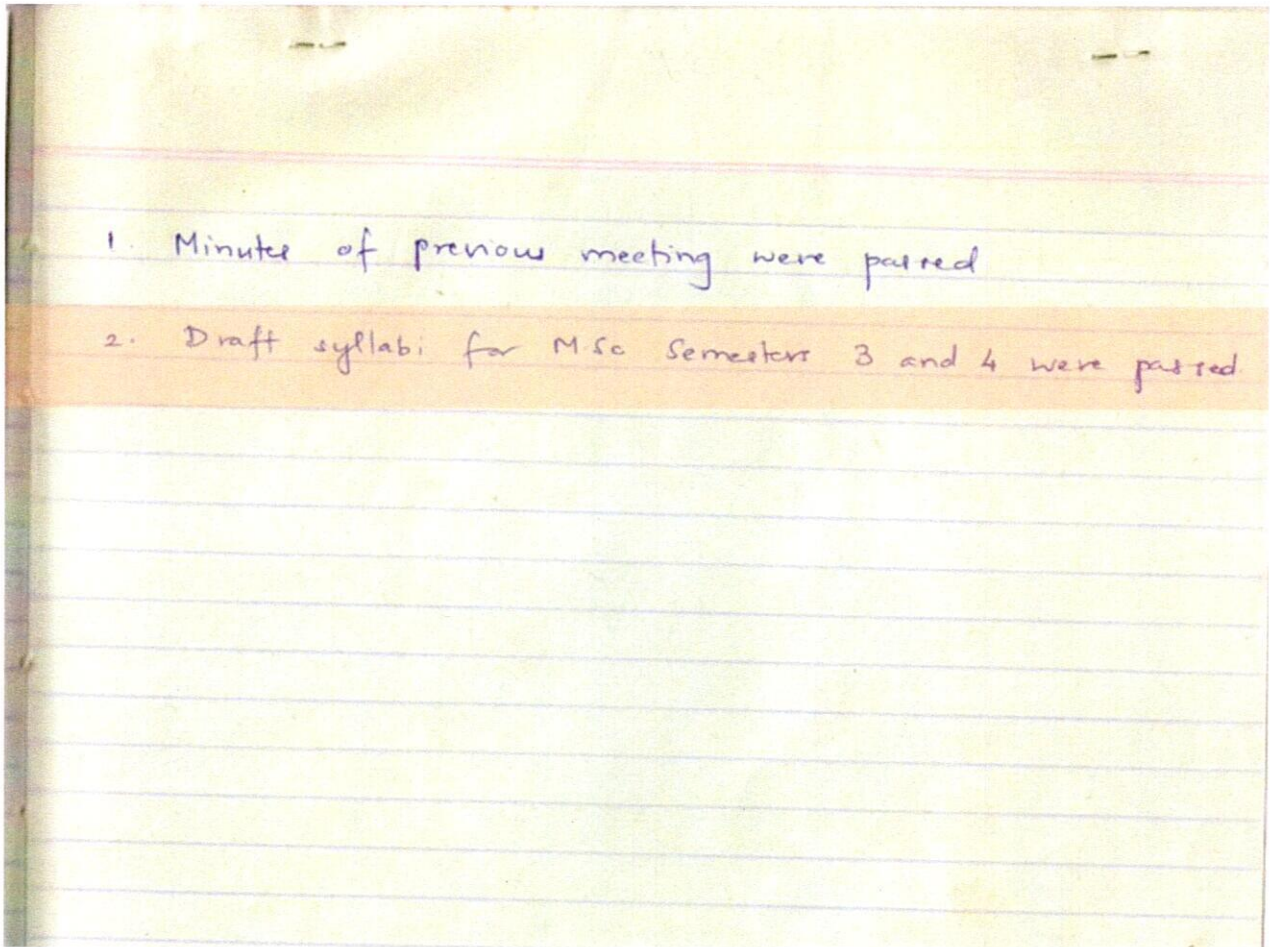 1. Minutes of previous meeting were passed
2. Draft syllabi for MSc Semesters 3 and 4 were passed